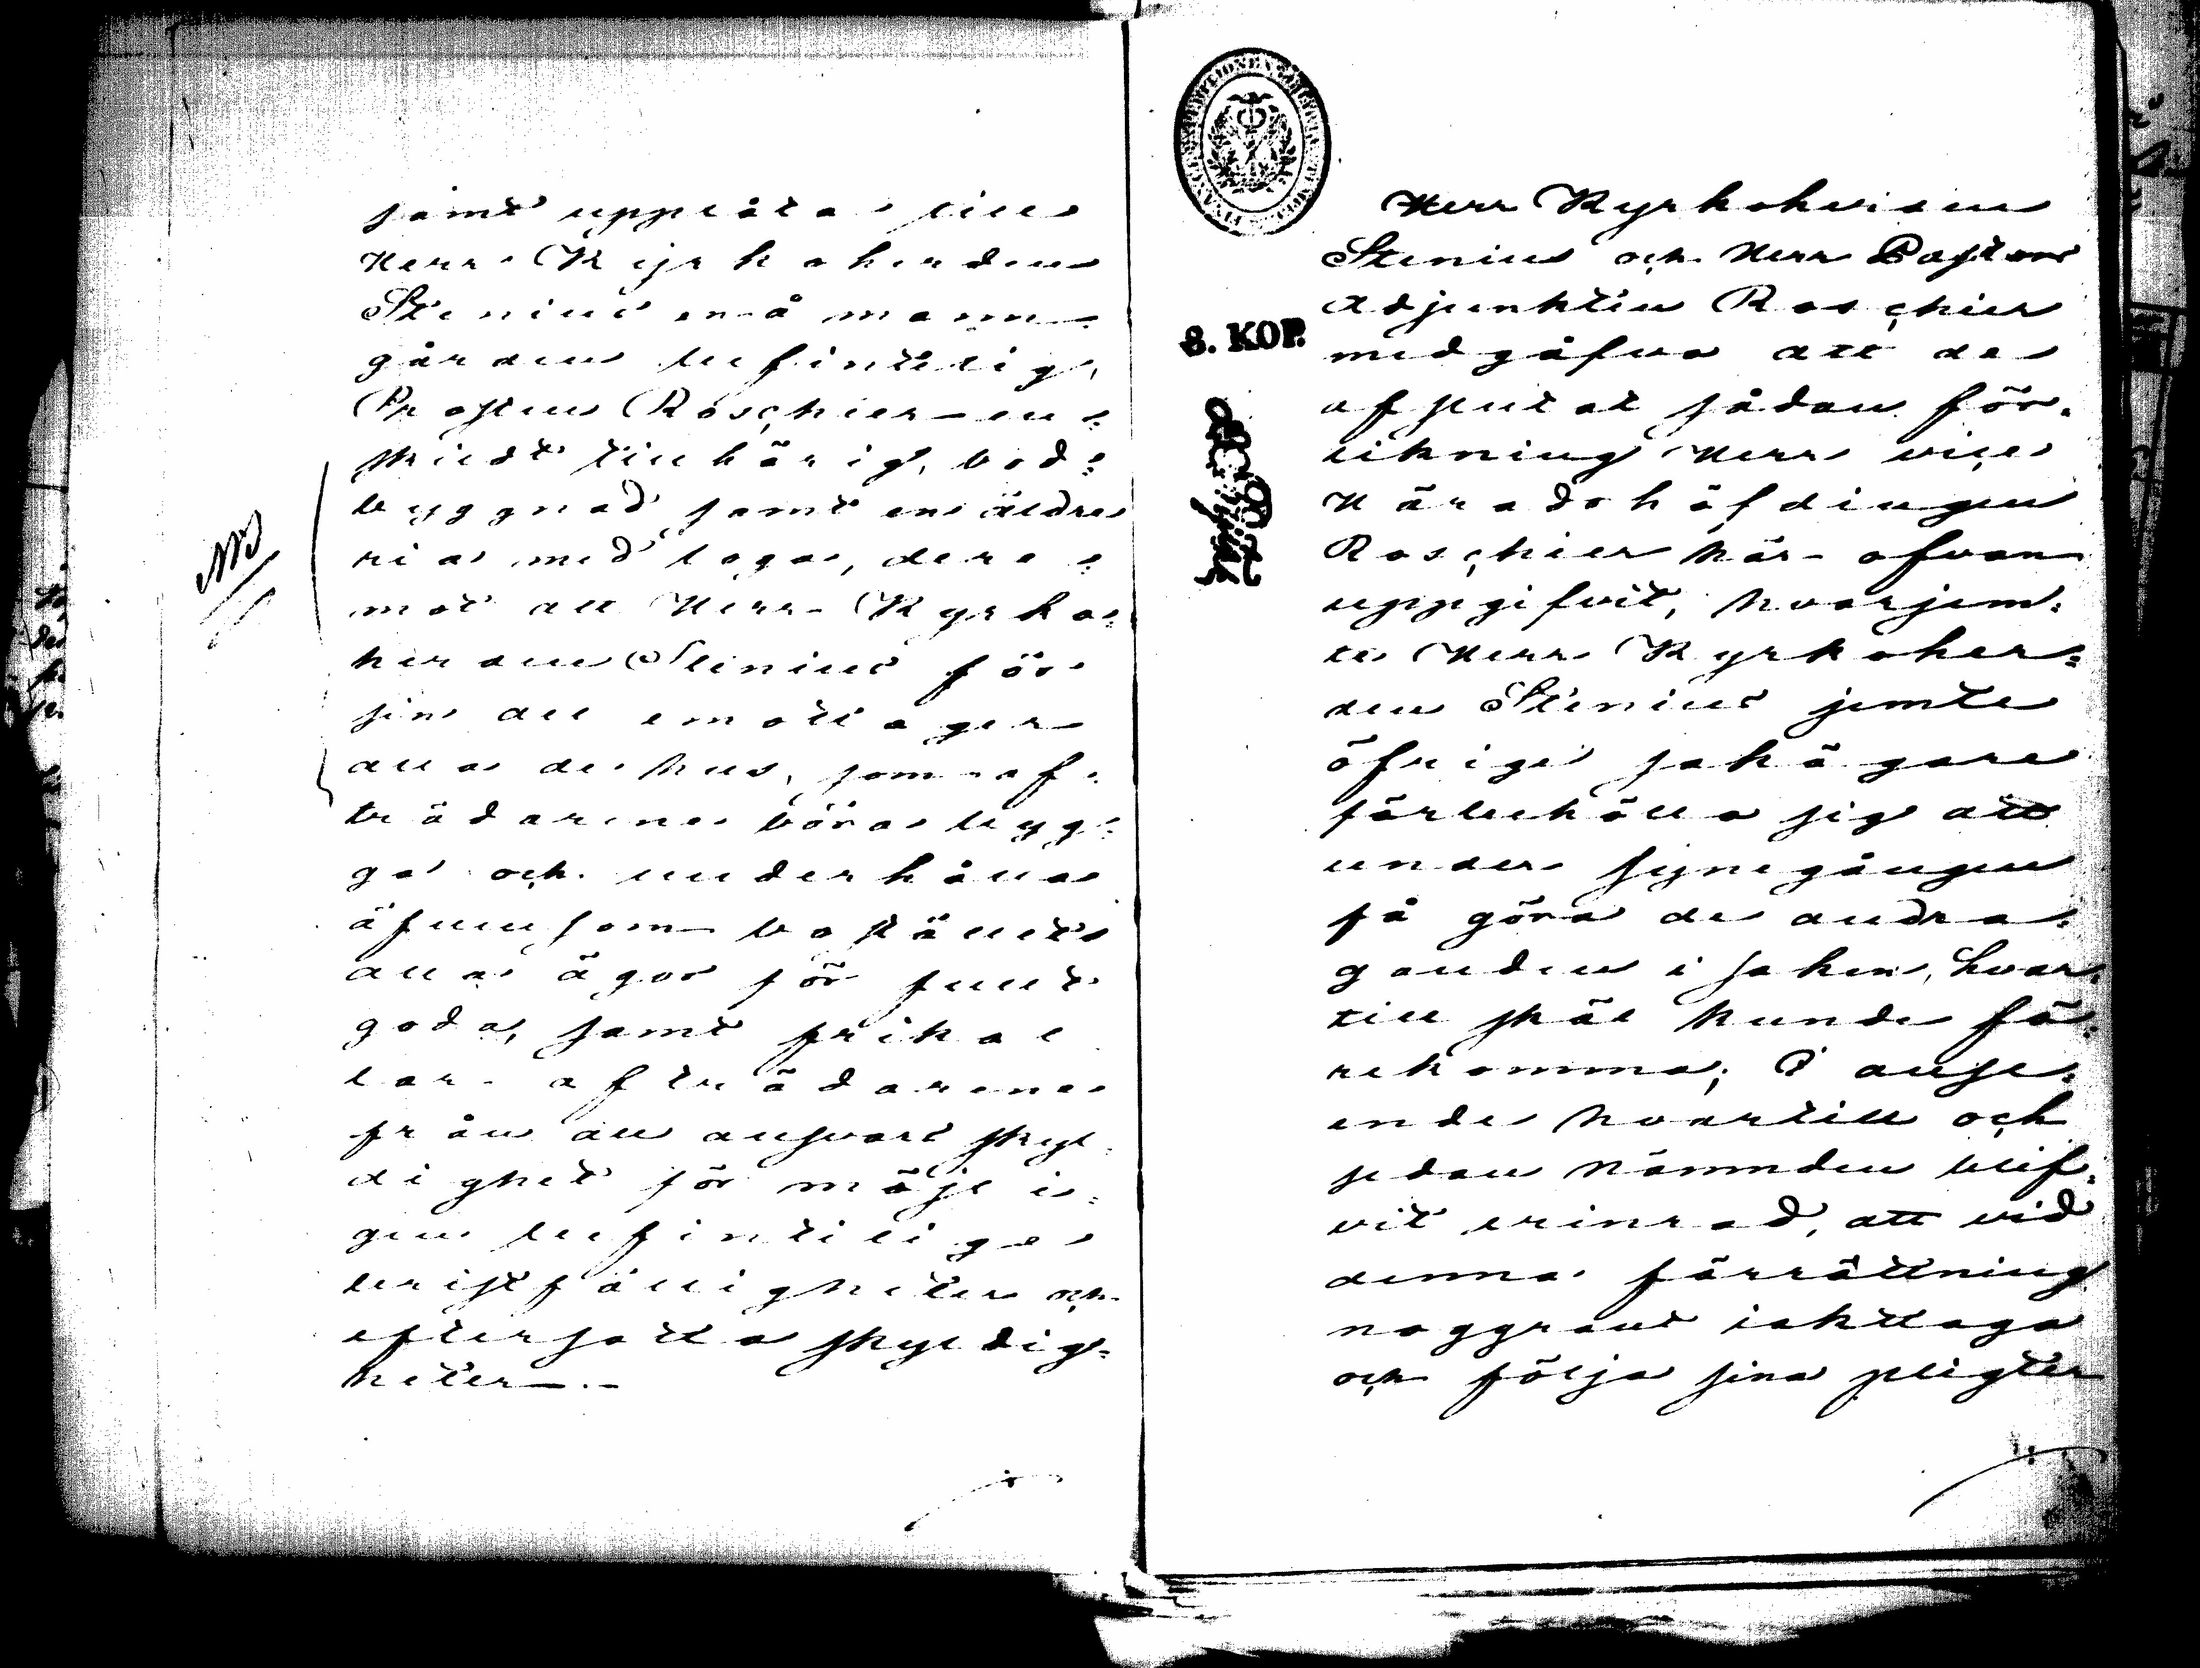 samt upplåta till
Herr Kyrkoherden
Stenius en å mann-
gården befintelig,
Prosten Roschier en-
skildt tillhörig, bod-
byggnad samt en äldre
ria med loga, dere-
mot att Herr Kyrko-
herden Stenius för
sin del emottager
alla de hus, som af-
trädarene böra byg-
ga och underhålla
äfvensom boställets
alla ägor för fullt
goda, samt frikal-
lar afträdarene
från all ansvars skyl-
dighet för möjeli-
gen befinteliga
bristfälligheter och
eftersatta skyldig-
heter.-
NB
8. KOP.
Herr Kyrkoherden
Stenius och Herr Pastors
Adjunkten Roschier
medgåfvo att de
afslutat sådan för-
likning Herr vice
Häradshöfdingen
Roschier här ofvan
uppgifvit, hvarjem-
te Herr Kyrkoher-
den Stenius jemte
öfrige sakägare
förbehöllo sig att
under synegången
få göra de andra-
ganden i saken, hvar-
till skäl kunde fö-
rekomma; I anse-
ende hvartill och
sedan Nämnden blif-
vit erinrad, att vid
denna förrättning
noggrant iakttaga
och följa sina pligter